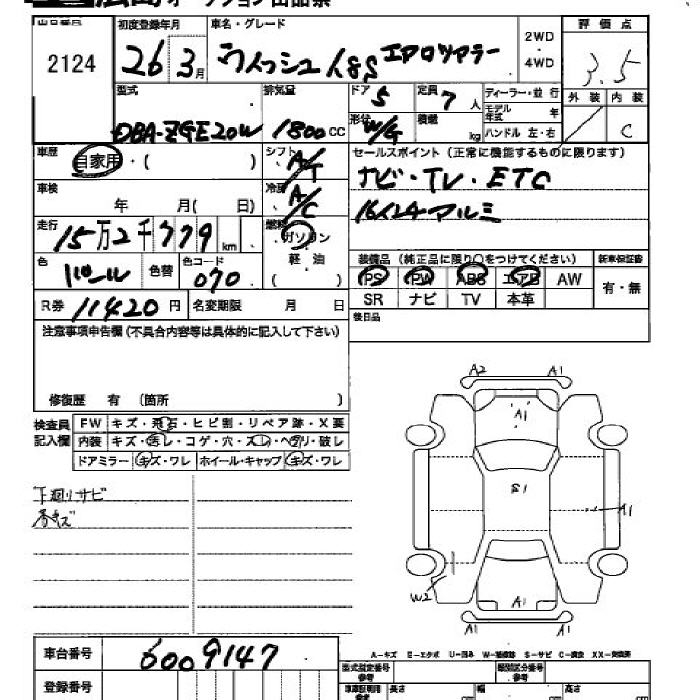 広島オークション出品票
出品番号 初度登録年月 車名・グレード 評価点
2124 26 3月 ウィッシュ 1.8S エアロツアラー 2WD・4WD 3.5
型式 排気量 ドア 5 定員 7 人 ディーラー・並行 外装 内装
DBA-ZGE20W 1800cc 形状 W/G 積載 kg モデル年式 年 ハンドル 左・右 C
車歴 自家用・( ) シフト A/T セールスポイント(正常に機能するものに限ります)
車検 年 月( 日) 冷房 A/C ナビ・TV・ETC
16インチアルミ
走行 15万2千779km 燃料 ガソリン 軽油
装備品(純正品に限り○をつけてください) 新車保証書
色 パール 色替 色コード 070
PS PW ABS エアB AW 有・無
SR ナビ TV 本革
R券 11420円 名変期限 月 日
後日品
注意事項申告欄(不具合内容等は具体的に記入して下さい)
修復歴 有(箇所 )
検査員記入欄 FW キズ・飛石・ヒビ割・リペア跡・X要
内装 キズ・汚レ・コゲ・穴・スレ・ヘタリ・破レ
ドアミラー キズ・ワレ ホイール・キャップ キズ・ワレ
下廻りサビ
各キズ
A2 A1
A1
S1
A1
W2
A1
A1 A1
A-キズ E-エクボ U-凹み W-補修跡 S-サビ C-腐食 XX-交換済
車台番号 6009147
登録番号
型式指定番号 参考 類別区分番号 参考
車庫証明用 参考 長さ cm 幅 cm 高さ cm